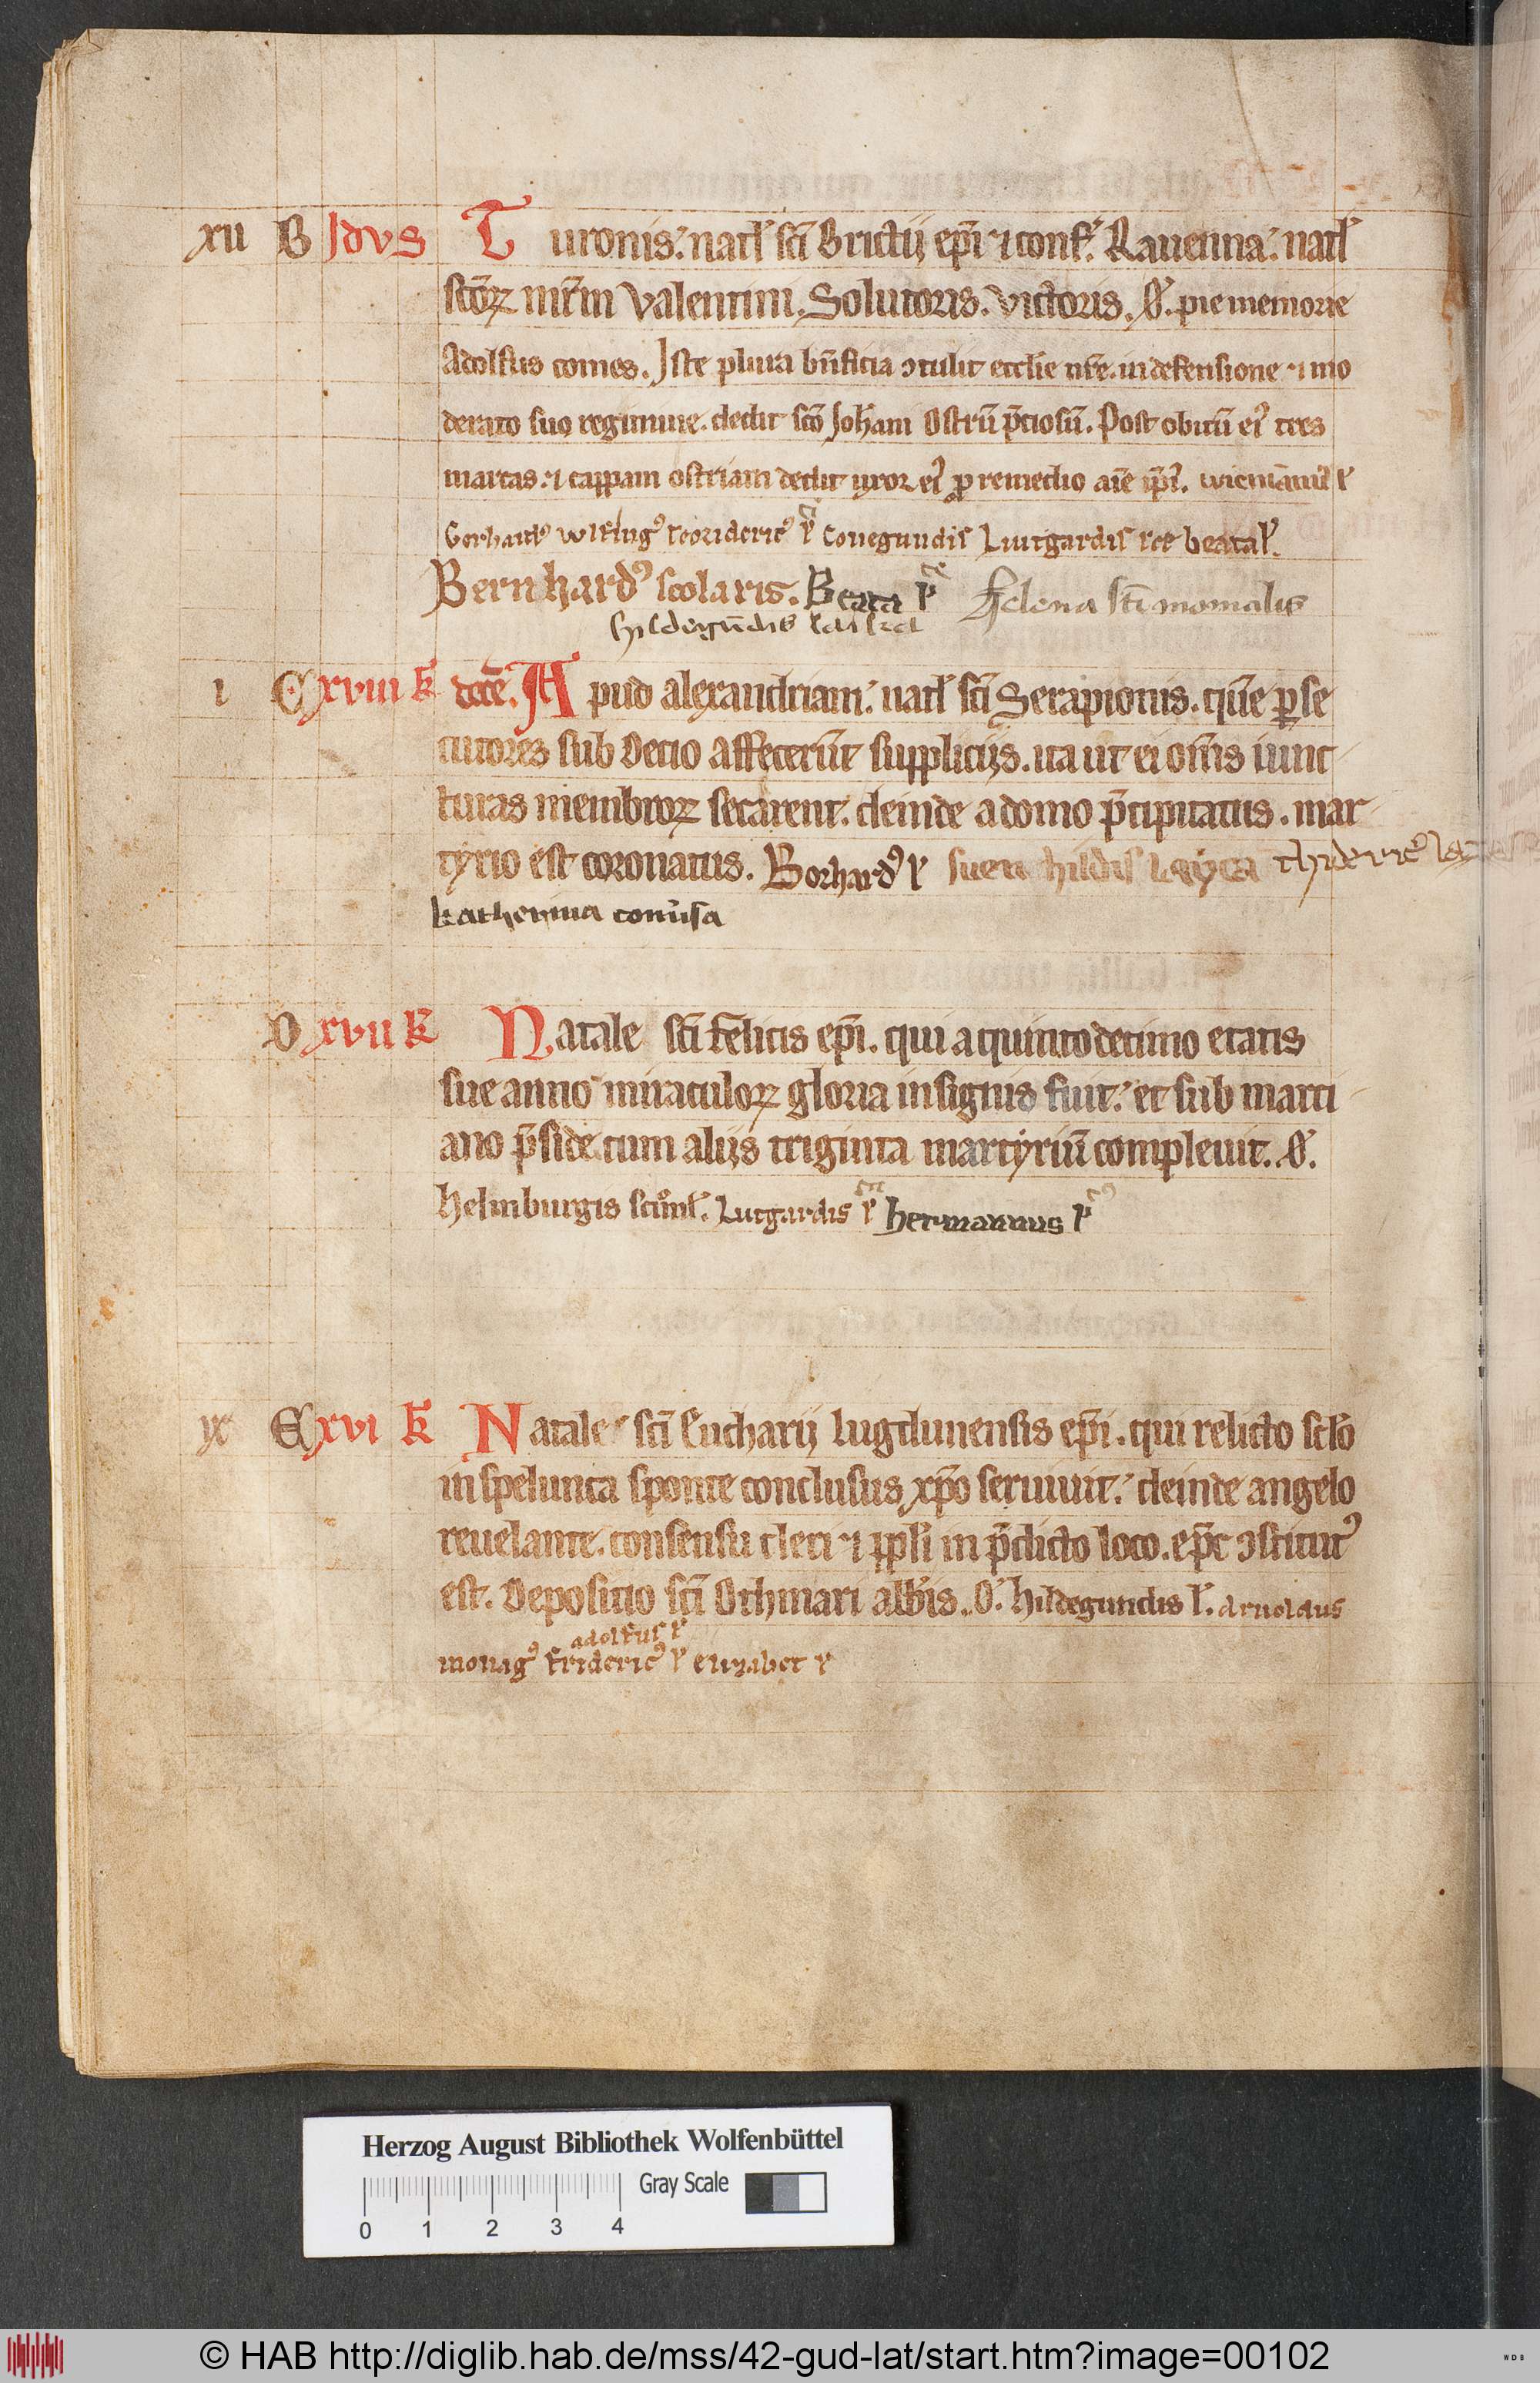 xii B Idus Turonis. natł sci̅ Brictij epi̅ ⁊ conf. Rauenna. natł
sco̅ꝝ mr̅m Valentini. Solutoris. Victoris. O. pie memorie
Adolfus comes. Iste plura bn̅ficia ↄtulit eccłie nr̅e. in defensione ⁊ mo
derato suo regimine. dedit sco̅ Joh̅ani Ostru̅ p̅ciosu̅. Post obitu̅ eiꝰ tres
marcas. ⁊ cappam ostriam dedit uxor eiꝰ ꝓ remedio ai̅e ip̅iꝰ. wicma̅nuꝰ ł
Gerhardꝰ wlfingꝰ teoridericꝰ ł Conegundis Liutgardis beata ł.
Bernhardꝰ scolaris. Beata ł Helena scti̅monialis
hildegu̅dis laica
i C xviii k dece̅. Apud alexandriam. natł sci̅ Serapionis. que̅ ꝑse
cutores sub Decio affeceru̅t supplicijs. ita ut ei om̅is iunc
turas membroꝝ secarent. deinde a domo p̅cipitatus. mar
tyrio est coronatus. Borhardꝰ ł suenehildis layca thidericꝰ
katherina conu̅sa
D xvii k Natale sci̅ Felicis epi̅. qui a quintodecimo etatis
sue anno miraculoꝝ gloria insignis fuit. et sub marci
ano p̅side. cum alijs triginta martyriu̅ compleuit. O.
Helmburgis Lutgardis ł hermannus ł
ix E xvi k Natale sci̅ Eucharij lugdunensis epi̅. qui relicto scło
in spelunca sponte conclusus xp̅o seruiuit. deinde angelo
reuelante. consensu cleri ⁊ ppłi in p̅dicto loco. ep̅c ↄstitutꝰ
est. Depositio sci̅ Othmari abb̅is. O. Hildegundis ł. Arnoldus
adolfus ł
monagꝰ fridericꝰ ł elizabet ł
Herzog August Bibliothek Wolfenbüttel
Gray Scale
0 1 2 3 4
© HAB http://diglib.hab.de/mss/42-gud-lat/start.htm?image=00102
WDB